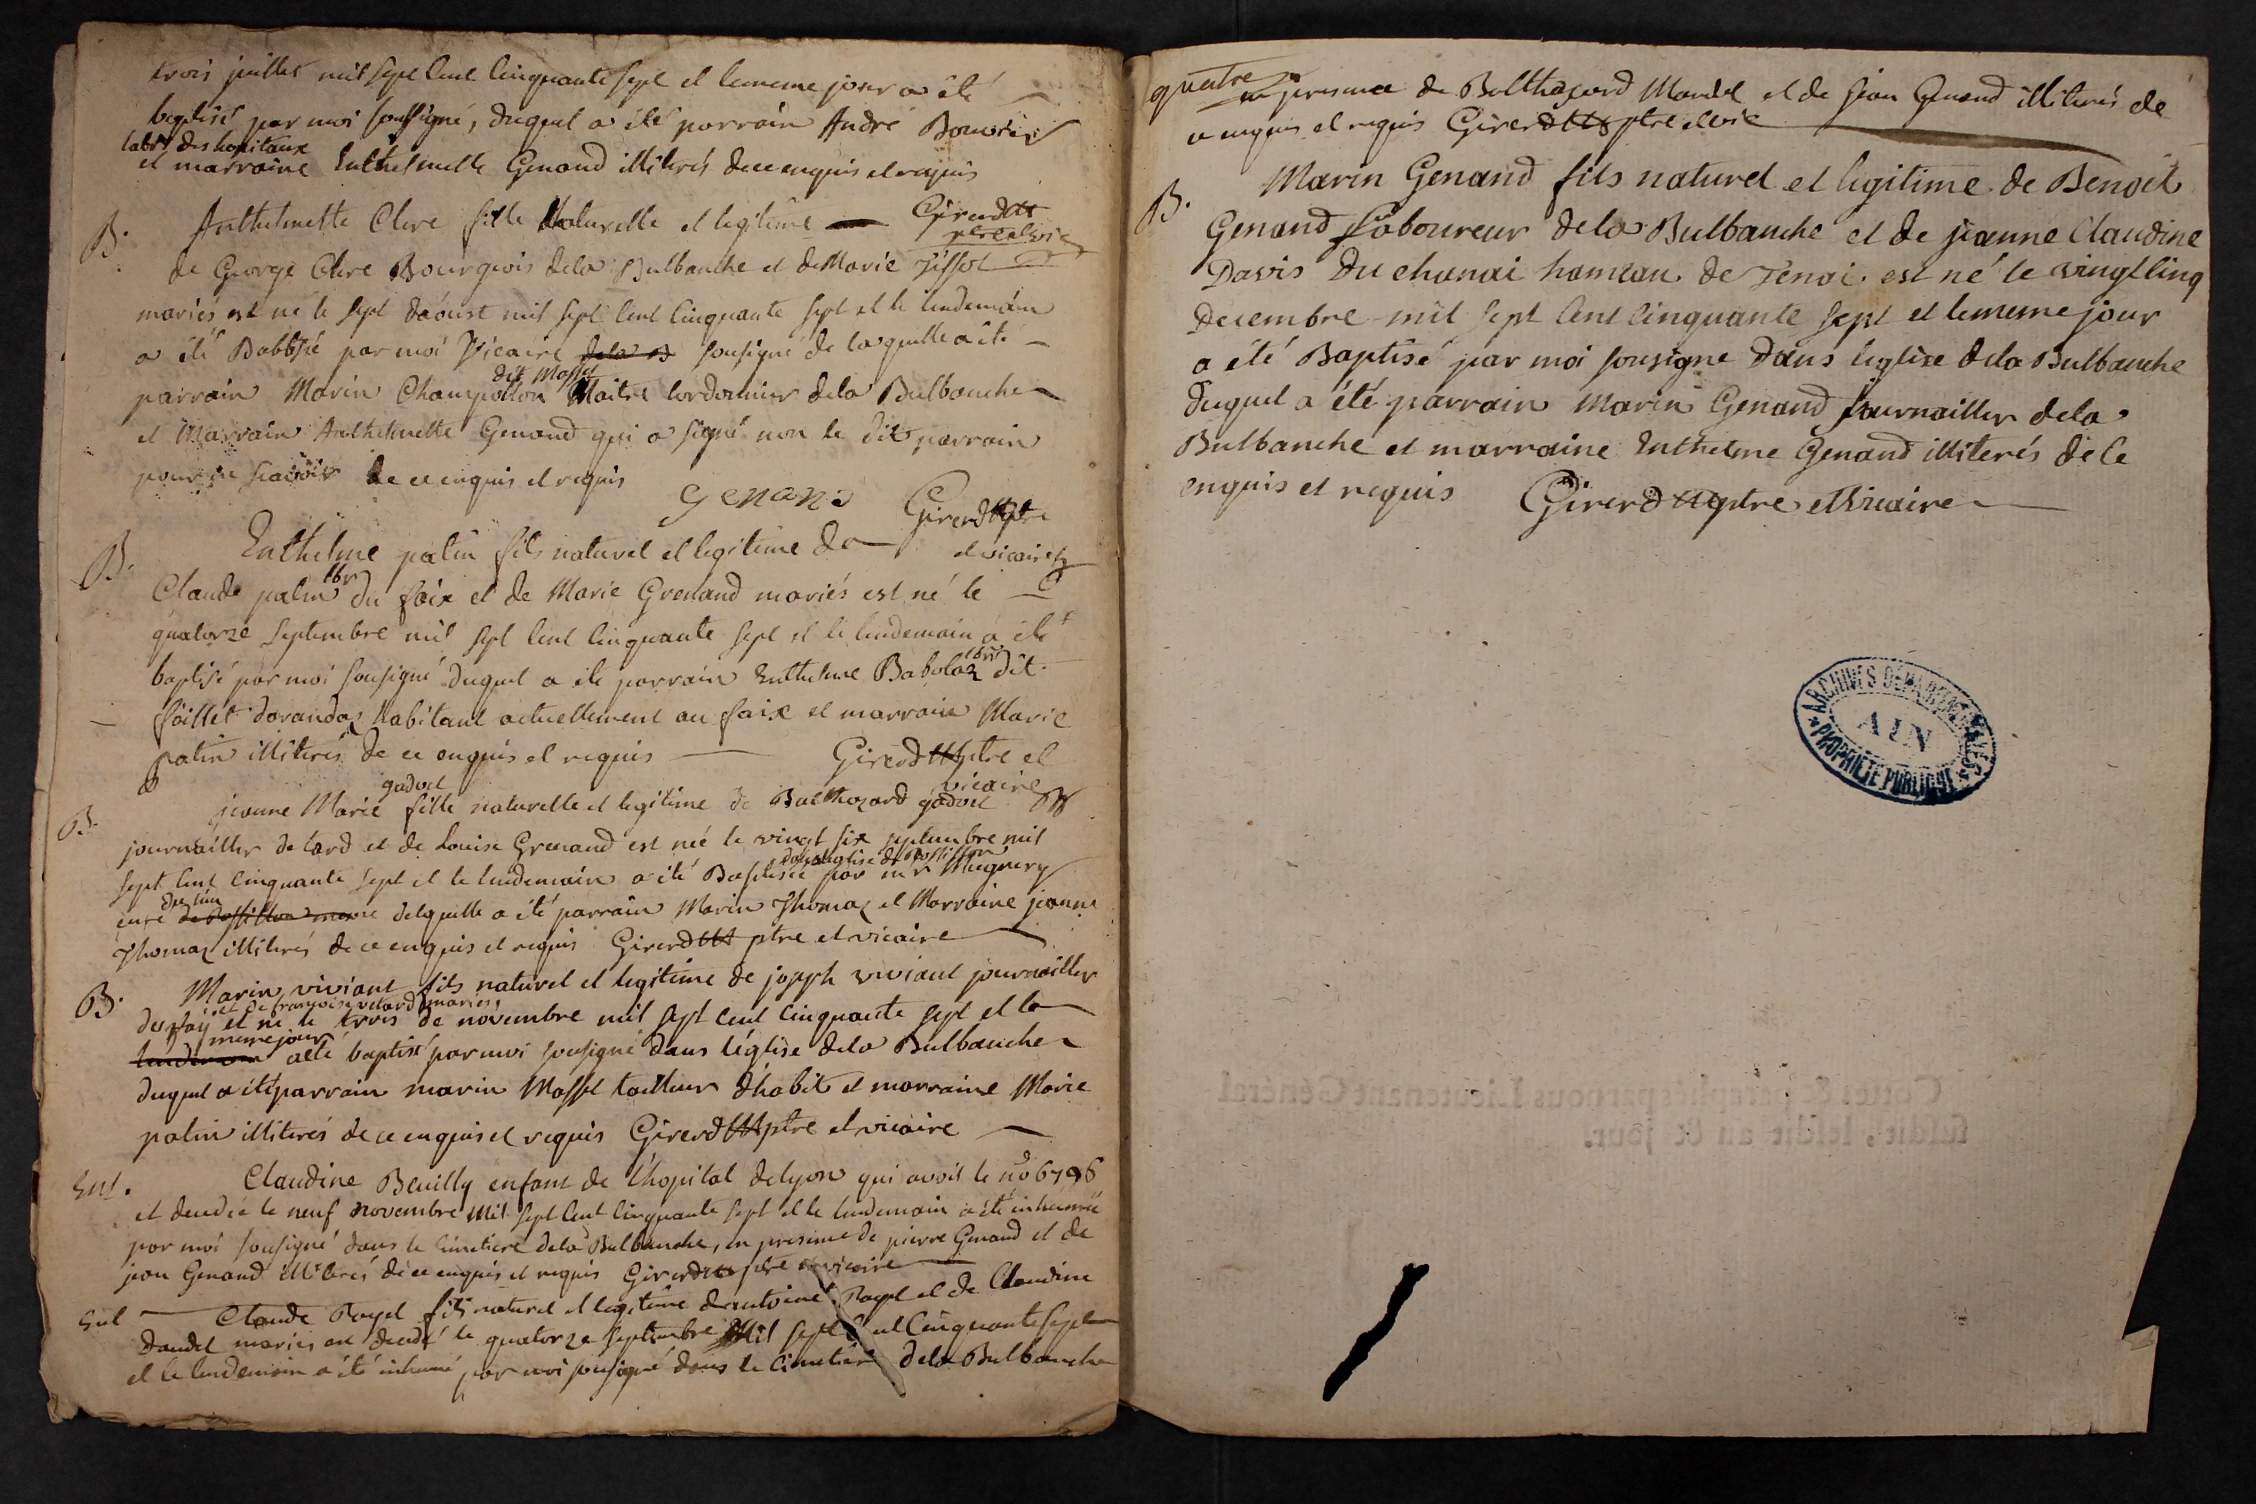 trois juillet mil sept cent cinquante sept et le meme jour a été
baptisé par moi sousigné, duquel a été parrain André
labr des hopitaux
et marraine Enthelmette Genand illiterés de ce enquis et requis
Girerd ptre et vic
B. Anthelmette Clere fille naturelle et legitime
de George Clere Bourgeois de la Bulbanche et de Marie Tissot
mariés est né le sept daoust mil sept cent cinquante sept et le lendemain
a été Babtisé par moi Vicaire de la B sousigné de laquelle a été
dit Massel
parrain Marin Champollon Maitre Cordonnier de la Bulbanche
et Marrain Anthelmette Genand qui a signé non le dit parrain
pour ne scavoir de ce enquis et requis
genand Girerd ptre
et vicaire
B. Enthelme patin fils naturel et legitime de
Claude patin lbr du faix et de Marie Grenand mariés est né le
quatorze septembre mil sept cent cinquante sept et le lendemain a été
baptisé par moi sousigné duquel a été parrain Enthelme Babolaz lbr dit
faillet dorandaz habitant actuellement au faix et marraine Marie
patin illiterés de ce enquis et requis Girerd ptre et
vicaire
B. jeanne Marie gadoel fille naturelle et legitime de Balthozard gadoel
journailler de lard et de Louise Grenand est né le vingt six septembre mil
dans leglise de Rossillon
sept cent cinquante sept et le lendemain a été Baptisée par mr Mugnery
dud lieu
curé de Rossillon meme delquille a été parrain Marin Thomaz et Marraine jeanne
Thomaz illiterés de ce enquis et requis Girerd ptre et vicaire
B. Marin viviant fils naturel et legitime de joseph viviant journailler
et de françoise vetard mariés
du fay et né le trois de novembre mil sept cent cinquante sept et le
meme jour
lendemain a été baptisé par moi sousigné dans l'église de la Bulbanche
duquel a été parrain marin Massel tailleur d'habit et marraine Marie
patin illiterés de ce enquis et requis Girerd ptre et vicaire
Ent. Claudine Beuilly enfant de l'hopital de lyon qui avoit le no 6796
et decedée le neuf novembre mil sept cent cinquante sept et le lendemain a été inhumée
par moi sousigné dans le cimetiere de la Bulbanche, en presence de pierre Genand et de
jean Genand illiterés de ce enquis et requis Girerd ptre et vicaire
Ent Claude Royel fils naturel et legitime dantoine Royel et de Claudine
Daudet mariés est decedé le quatorze septembre Mil sept cent Cinquante sept
et le lendemain a été inhumé par moi sousigné dans le cimetiere de la Bulbanche
quatre
en presence de Balthazard Mardel et de jean Genand illiterés de
ce enquis et requis Girerd ptre et vic
B. Marin Genand fils naturel et legitime de Benoit
Genand Laboureur de la Bulbanche et de jeanne Claudine
Davis du chanai hameau de Tenai est né le vingt cinq
Decembre mil sept cent cinquante sept et le meme jour
a été Baptisé par moi sousigne dans leglise de la Bulbanche
duquel a été parrain Marin Genand journailler de la
Bulbanche et marraine Enthelme Genand illiterés de ce
enquis et requis Girerd ptre et Vicaire
ARCHIVES DÉPARTEMENTALES
AIN
PROPRIÉTÉ PUBLIQUE
Cottes & paraphes par nous Lieutenant Général
susdit, lesdit an & jour.